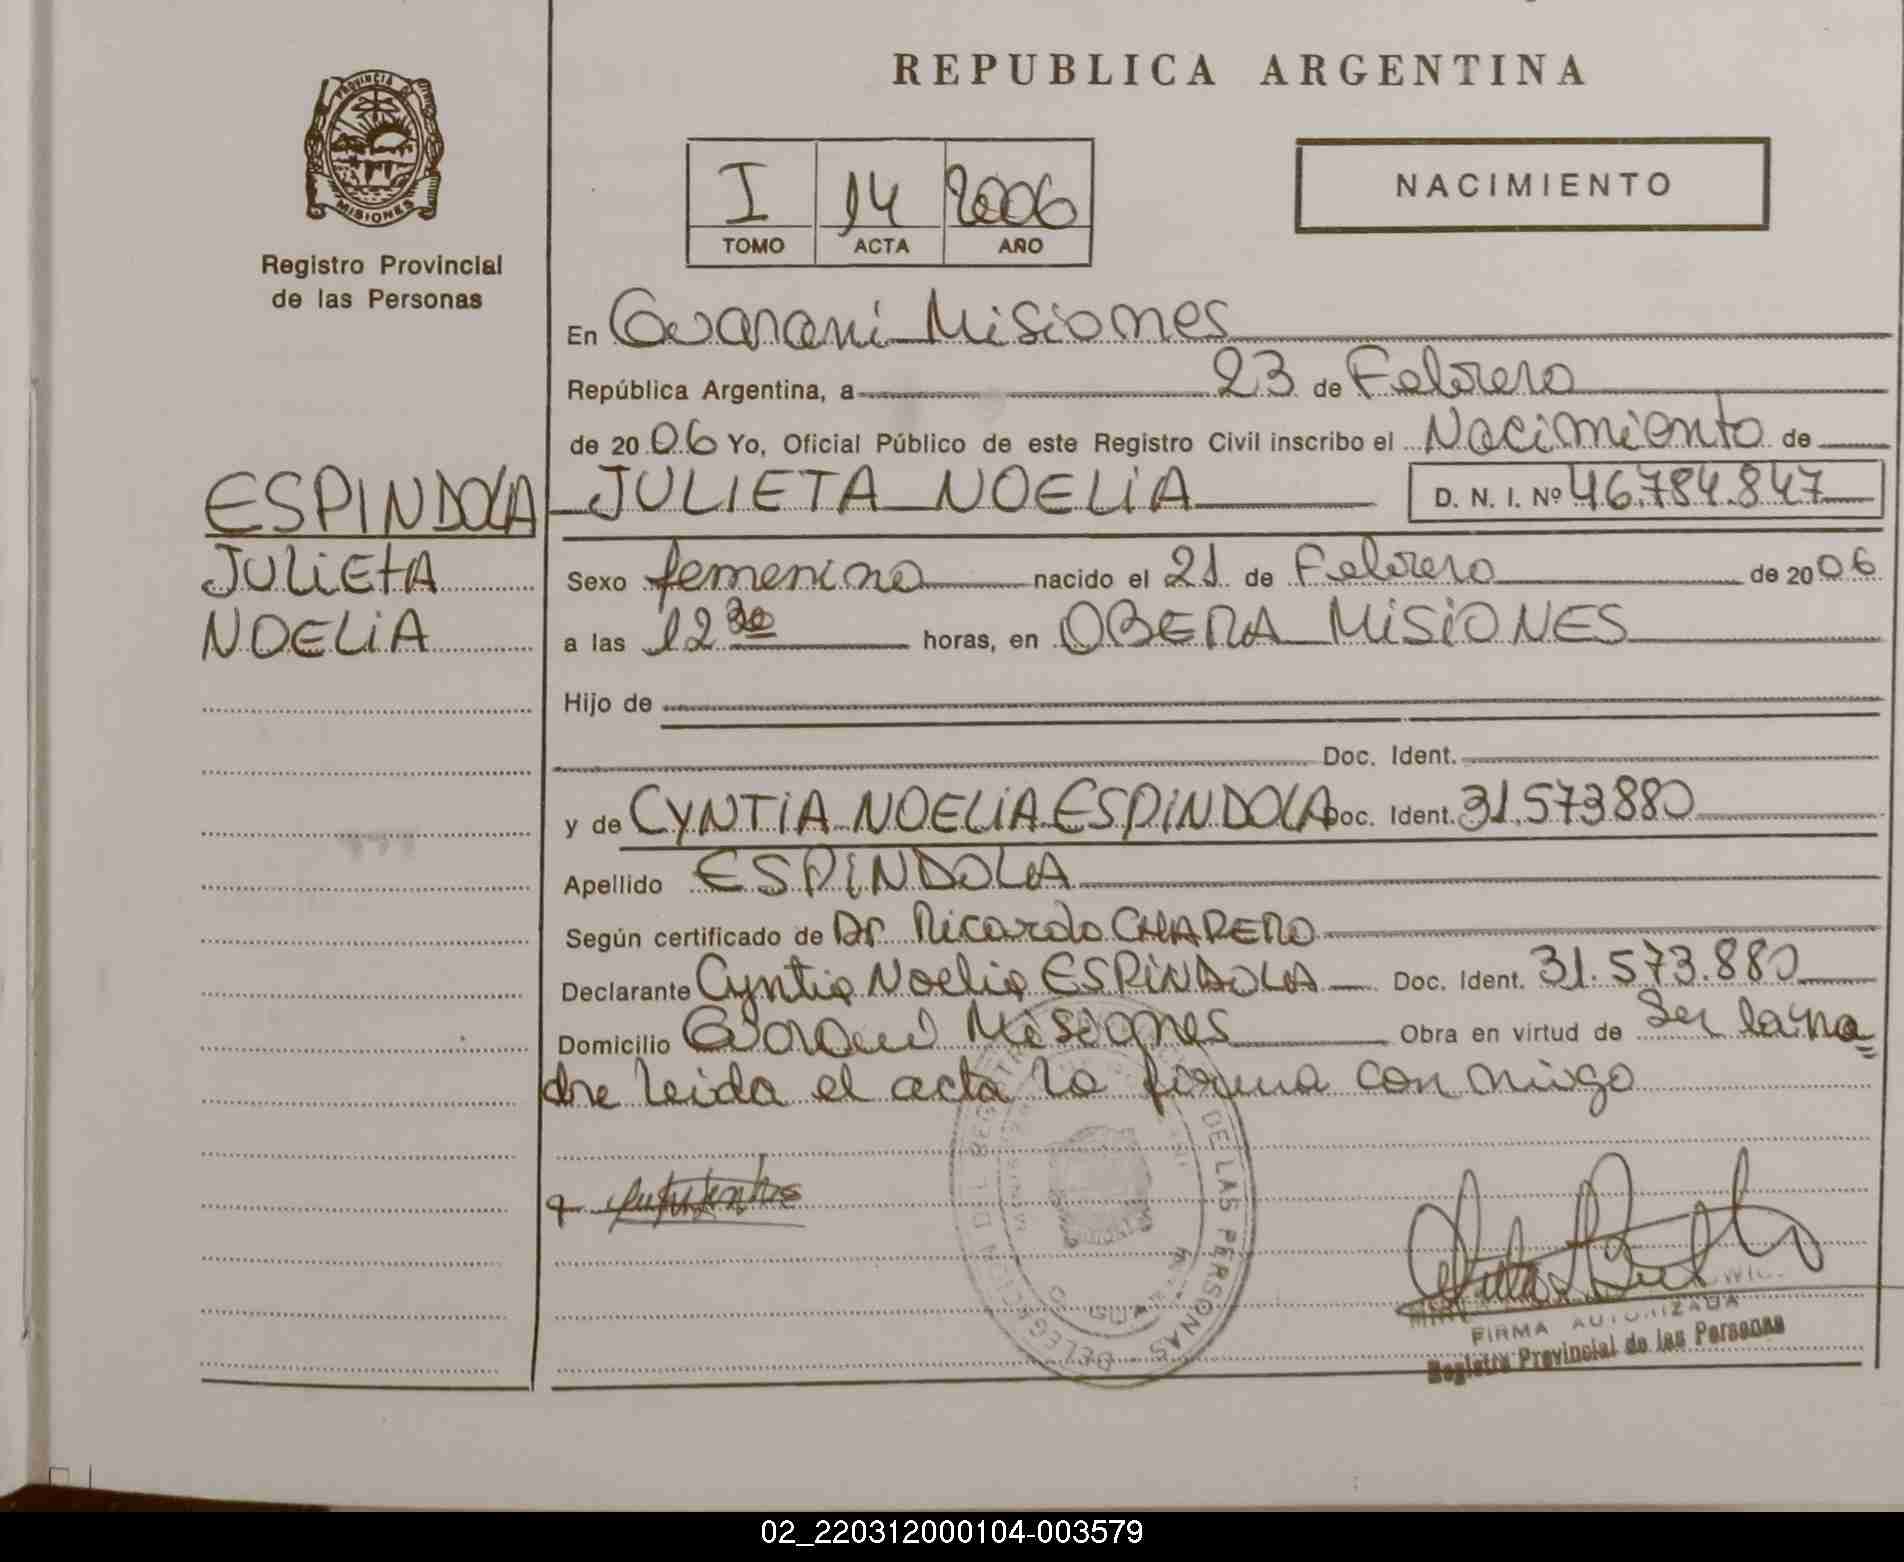 REPUBLICA ARGENTINA
PROVINCIA DE
MISIONES
Registro Provincial
de las Personas
I 14 2006
TOMO ACTA AÑO
NACIMIENTO
En Guaraní Misiones
República Argentina, a 23 de Febrero
de 2006 Yo, Oficial Público de este Registro Civil inscribo el Nacimiento de
ESPINDOLA JULIETA NOELIA D. N. I. Nº 46.784.847
JULIETA
NOELIA
Sexo femenino nacido el 21 de Febrero de 2006
a las 12 30 horas, en OBERA MISIONES
Hijo de
Doc. Ident.
y de CYNTIA NOELIA ESPINDOLA Doc. Ident. 31.573880
Apellido ESPINDOLA
Según certificado de Dr Ricardo
Declarante Cyntia Noelia ESPINDOLA Doc. Ident. 31.573.880
Domicilio Guaraní Misiones Obra en virtud de Ser la ma
dre leida el acta la firma con migo
DE LAS PERSONAS
FIRMA AUTORIZADA
Registro Provincial de las Personas
02_220312000104-003579